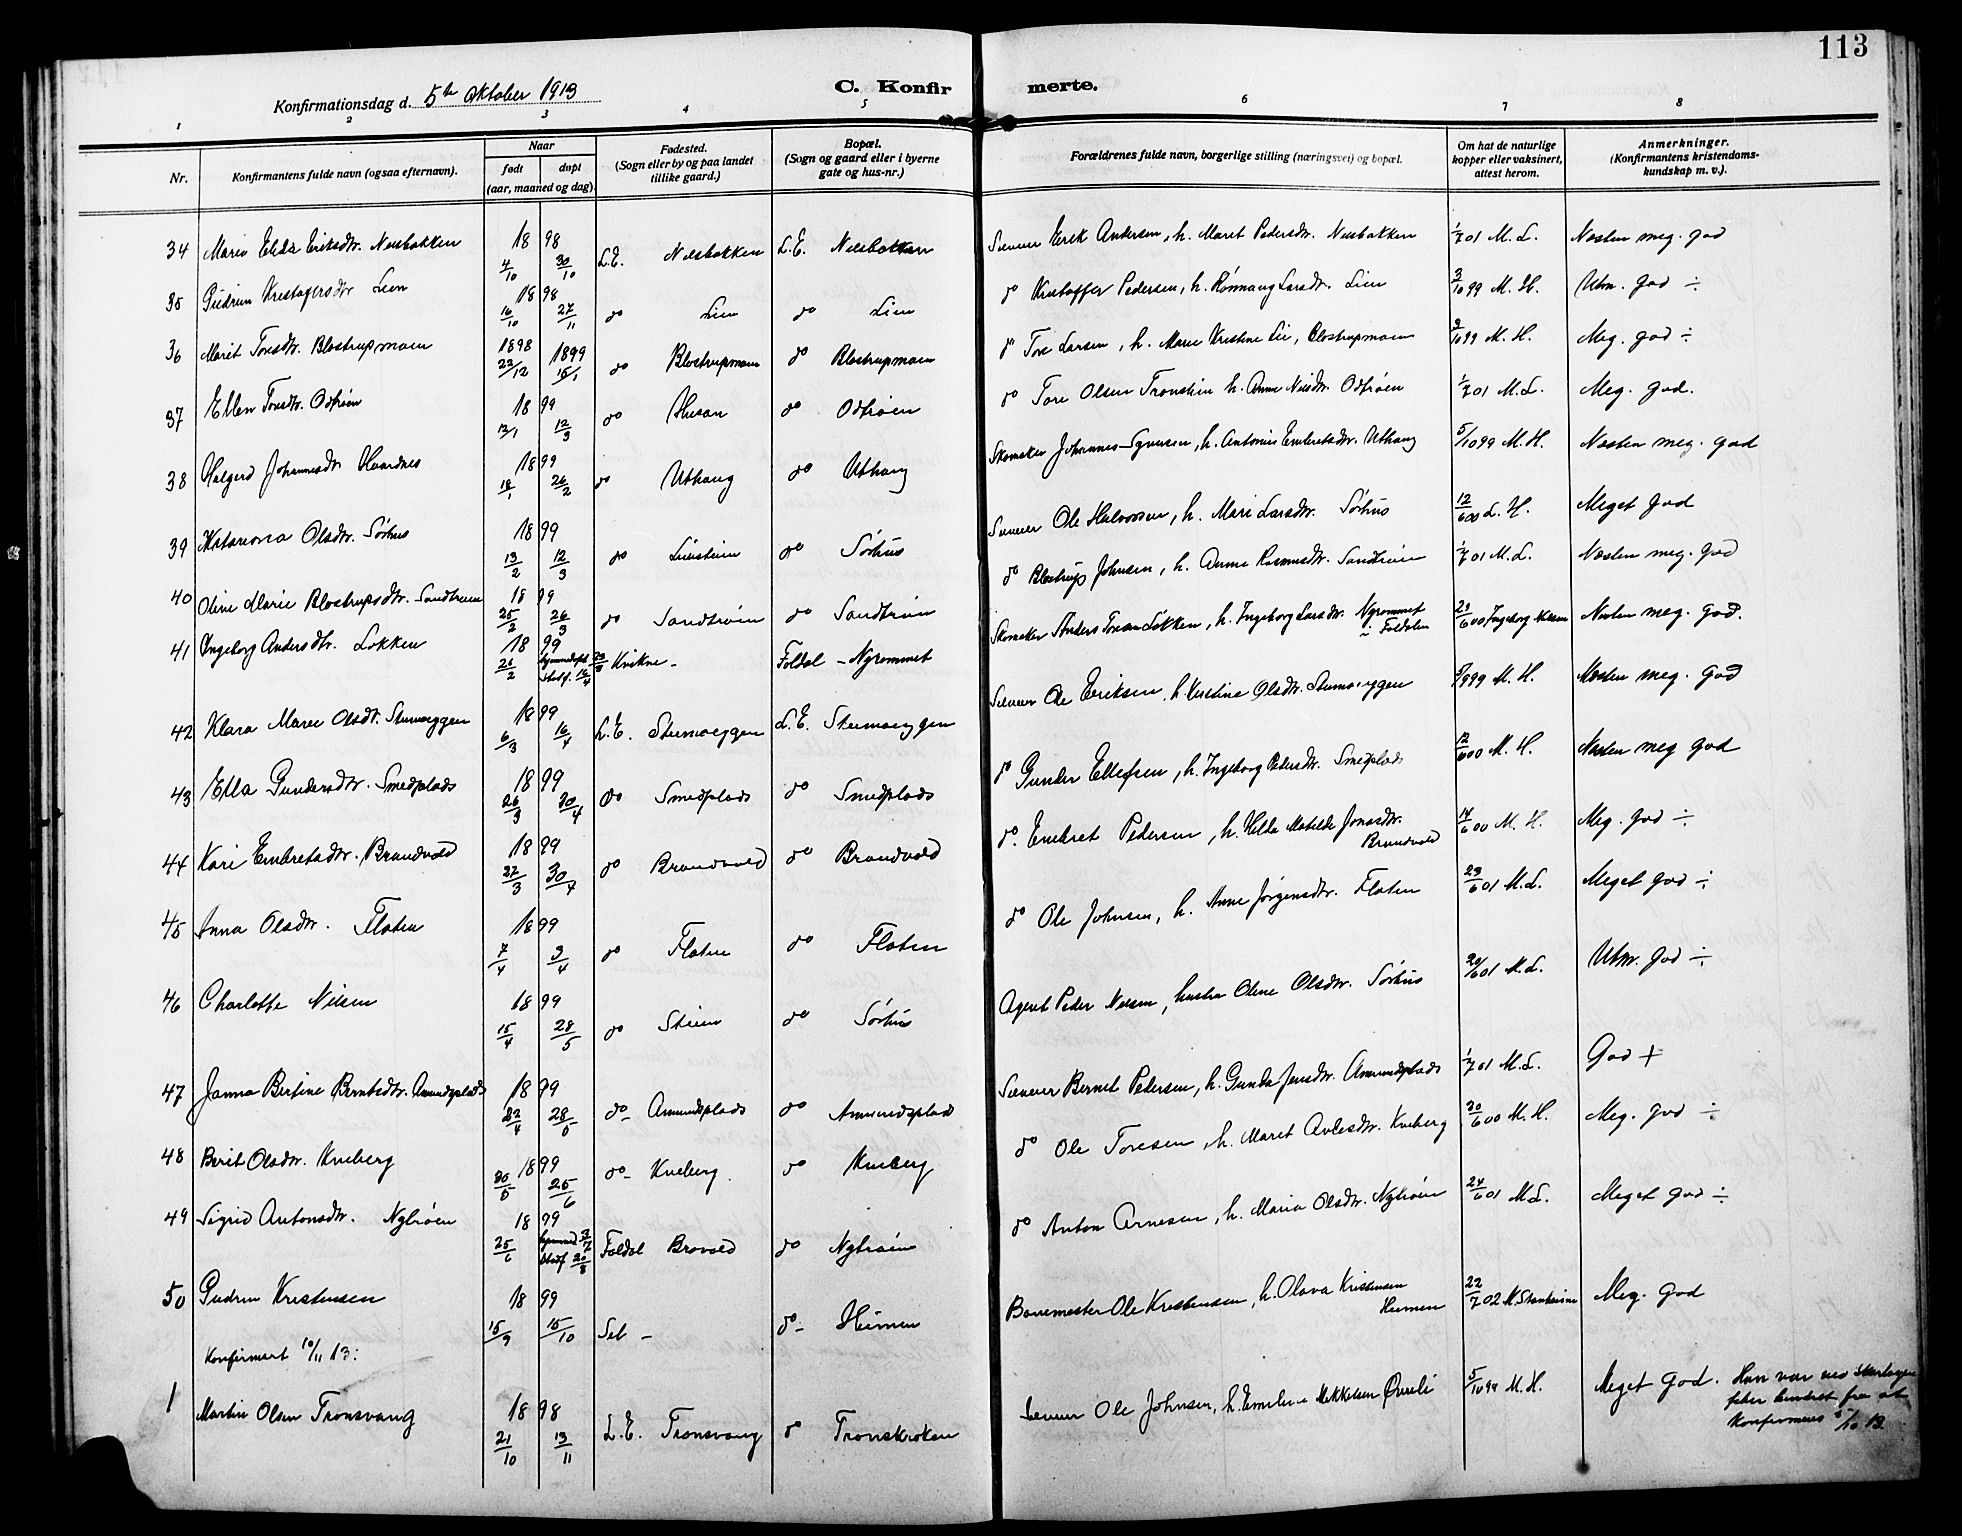 113
Konfirmationsdag d. 5te Oktober 1913
C. Konfirmerte.
1 2 3 4 5 6 7 8
Nr.
Konfirmantens fulde navn (ogsaa efternavn).
Naar
født døpt
(aar, maaned og dag).
Fødested.
(Sogn eller by og paa landet
tillike gaard.)
Bopæl.
(Sogn og gaard eller i byerne
gate og hus-nr.)
Forældrenes fulde navn, borgerlige stilling (næringsvei) og bopæl.
Om hat de naturlige
kopper eller vaksinert,
attest herom.
Anmerkninger.
(Konfirmantens kristendoms-
kundskap m. v.).
34 Marie Eriksdtr. Neisbakken 1898 4/10 30/10 L.E. Neisbakken L.E. Neisbakken Erik Andersen, h. Maret Pedersdtr. Neisbakken 1/7 01 M. L. Næsten meg. god
35 Gudrun Kristofersdtr Lien 1898 16/10 27/11 do Lien do Lien do Kristoffer Pedersen, h. Rønnaug Larsdtr. Lien 3/10 99 M. H. Utm. god ÷
36 Marit Toresdtr. Blostrupmoen 1898 22/12 1899 15/1 do Blostrupmoen do Blostrupmoen do Tore Larsen, h. Marie Kristine Lie, Blostrupmoen 3/10 99 M. H. Meg. god ÷
37 Ellen Toresdtr. Odtrøen 1899 12/1 12/3 do Husan do Odtrøen do Tore Olsen Tronstein h. Anne Nilsdtr. Odtrøen 1/7 01 M. L. Meg. god.
38 Halgerd Johannesdtr 1899 18/1 26/2 do Uthaug do Uthaug Skomaker Johannes Syversen, h. Embretsdtr. Uthaug 5/10 99 M. H. Næsten meg. god
39 Olsdtr. Sørhus 1899 13/2 12/3 do do Sørhus Ole Halvorsen, h. Mari Larsdtr. Sørhus 12/6 00 L. H. Meget god
40 Oline Marie Blostrupsdtr. Sandtrøen 1899 25/2 26/3 do Sandtrøen do Sandtrøen do Blostrup Johnsen, h. Anne Rasmusdtr. Sandtrøen 1/7 01 M. L. Næsten meg. god
41 Ingeborg Andersdtr. Løkken 1899 26/2 hjemmedøpt stadf. 16/4 Kvikne - Foldal - Nyrømmet Skomaker Anders Løkken, h. Ingeborg Larsdtr. Nyrømmet i Foldalen 29/6 00 Ingeborg Næsten meg. god.
42 Klara Marie Olsdtr. Steimoeggen 1899 6/3 16/4 L.E. Steimoeggen L.E. Steimoeggen Ole Eriksen, h. Kristine Olsdtr. Steimoeggen M. H. Næsten meg. god
43 Ella Gundersdtr. Smedplads 1899 26/3 30/4 do Smedplads do Smedplads do Gunder Ellefsen, h. Ingeborg Pedersdtr. Smedplads 12/6 00 M. H. Næsten meg god
44 Kari Embretsdtr. Brandvold 1899 22/3 30/4 do Brandvold do Brandvold do. Embret Pedersen, h. Hilda Matilde Jonasdtr. Brandvold 14/6 00 M. H. Meg. god ÷
45 Anna Olsdtr. Floten 1899 7/4 3/4 do Floten do Floten do Ole Johnsen, h. Anne Jørgensdtr. Floten 23/6 01 M. L. Meget god ÷
46 Charlotte Nilsen 1899 15/4 28/5 do Steien do Sørhus Agent Peder Nilsen, hustru Oline Olsdtr. Sørhus 20/6 01 M. L. Utm. god ÷
47 Janna Bertine Berntsdtr. Amundsplads 1899 22/4 28/5 do- Amundsplads do Amundsplads Bernt Pedersen, h. Gunda Jensdtr. Amundsplads 1/7 01 M. L. God +
48 Berit Olsdtr. Kveberg 1899 30/5 25/6 do- Kveberg. do Kveberg do Ole Toresen, h. Maret Kveberg 30/6 00 M. H. Meg. god ÷
49 Sigrid Antonsdtr. Nytrøen 1899 25/6 stadf 20/8 Foldal Brovold do Nytrøen do Anton Arnesen, h. Maria Olsdtr. Nytrøen 24/6 01 M. L. Meget god ÷
50 Gudrun Kristensen 1899 15/9 15/10 Sel - do- Heimen Banemester Ole Kristensen, h. Olava Kristensen Heimen 22/7 02 M. Meg. god
Konfirmert 10/11 13:
1 Martin Olsen Tronsvang 1898 21/10 13/11 L.E. Tronsvang do Tronskroken Ole Johnsen, h. Mikkelsen Øveli 5/10 99 M. H. Meget god. Han var ved
feber hindret fra at
Konfirmeres 5/10 13.